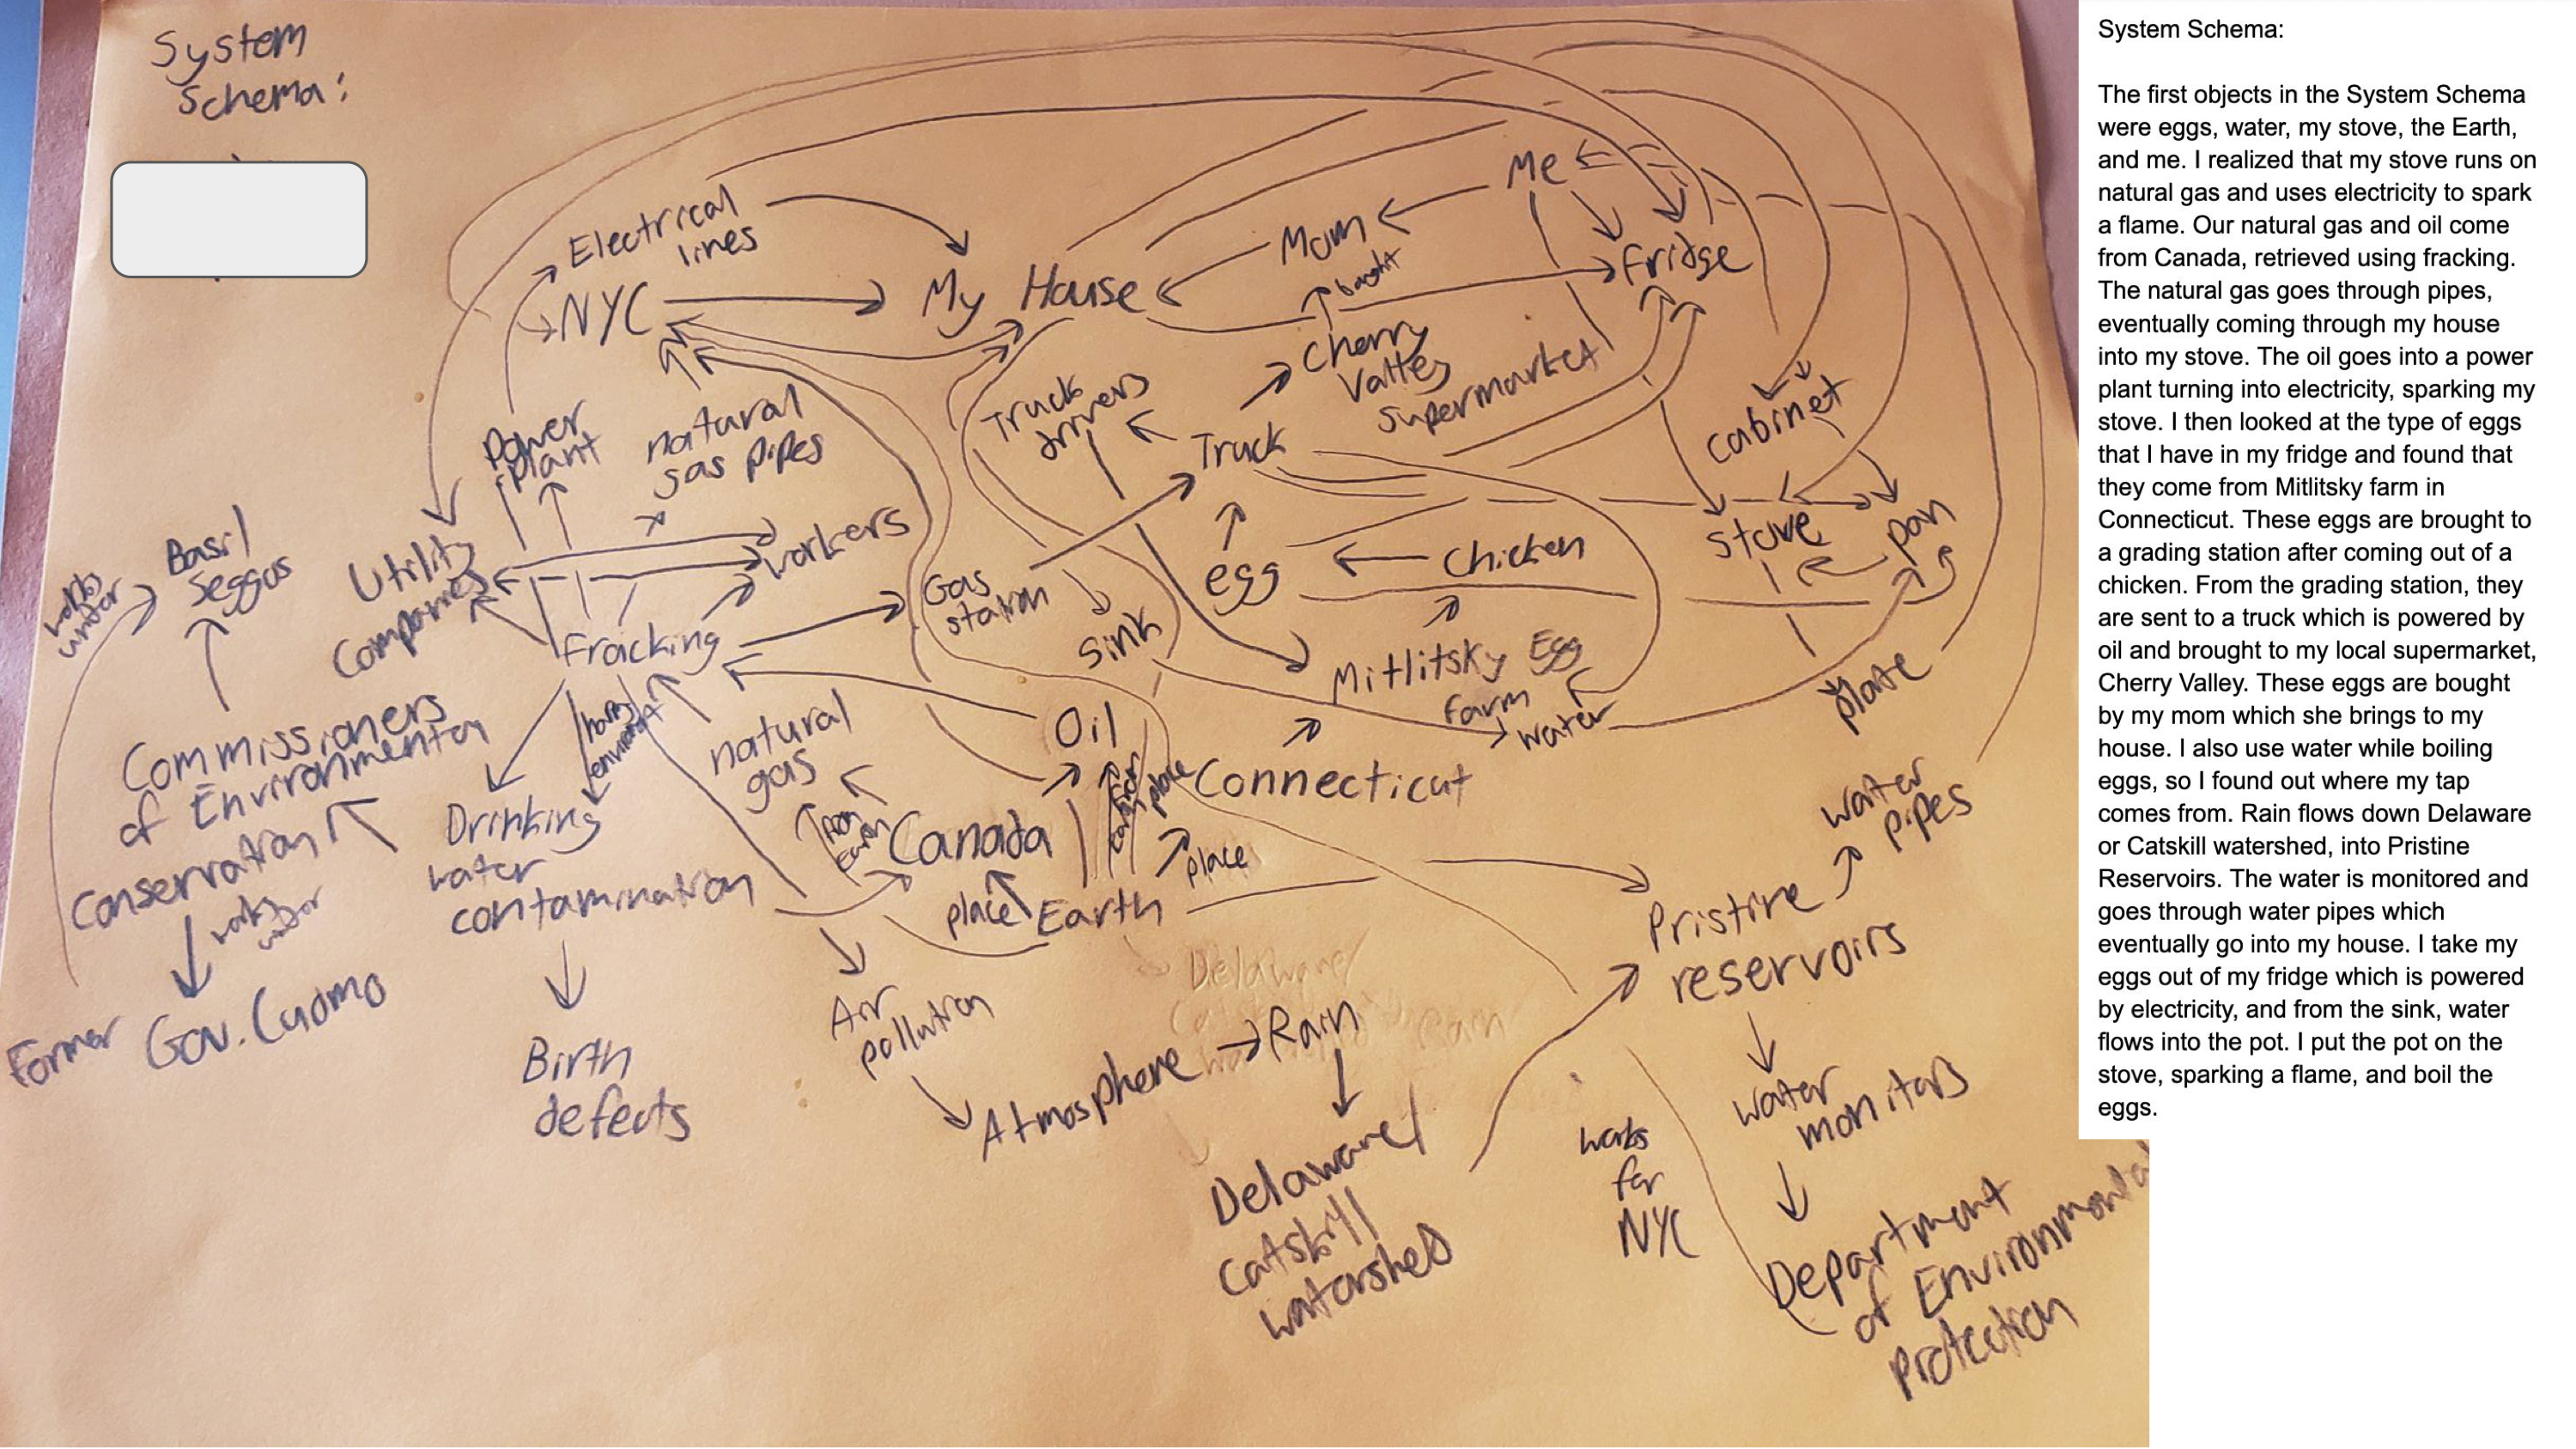 System
Schema:
Electrical
lines
NYC
My House
Mom
Me
Fridge
bought
Cherry
Valley
Supermarket
Truck
drivers
Truck
cabinet
Power
plant
natural
gas pipes
workers
Utility
Companies
Basil
Seggos
works
under
Fracking
Gas
station
sink
egg
Chicken
stove
pan
plate
Mitlitsky Egg
farm
water
Oil
natural
gas
Commissioners
of Environmental
Conservation
works
under
Former Gov. Cuomo
harms
environment
Drinking
water
contamination
Birth
defects
from
Earth
Canada
place
Earth
place
place
Connecticut
Air
pollution
Atmosphere
Rain
Delaware/
Catskill
watershed
Delaware/
Catskill
Rain
water
pipes
Pristine
reservoirs
water
monitors
works
for
NYC
Department
of Environmental
Protection
System Schema:
The first objects in the System Schema
were eggs, water, my stove, the Earth,
and me. I realized that my stove runs on
natural gas and uses electricity to spark
a flame. Our natural gas and oil come
from Canada, retrieved using fracking.
The natural gas goes through pipes,
eventually coming through my house
into my stove. The oil goes into a power
plant turning into electricity, sparking my
stove. I then looked at the type of eggs
that I have in my fridge and found that
they come from Mitlitsky farm in
Connecticut. These eggs are brought to
a grading station after coming out of a
chicken. From the grading station, they
are sent to a truck which is powered by
oil and brought to my local supermarket,
Cherry Valley. These eggs are bought
by my mom which she brings to my
house. I also use water while boiling
eggs, so I found out where my tap
comes from. Rain flows down Delaware
or Catskill watershed, into Pristine
Reservoirs. The water is monitored and
goes through water pipes which
eventually go into my house. I take my
eggs out of my fridge which is powered
by electricity, and from the sink, water
flows into the pot. I put the pot on the
stove, sparking a flame, and boil the
eggs.